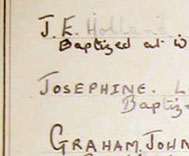 J. E. Holland.
Baptized at W
JOSEPHINE. L
Baptiz
GRAHAM. JOHN